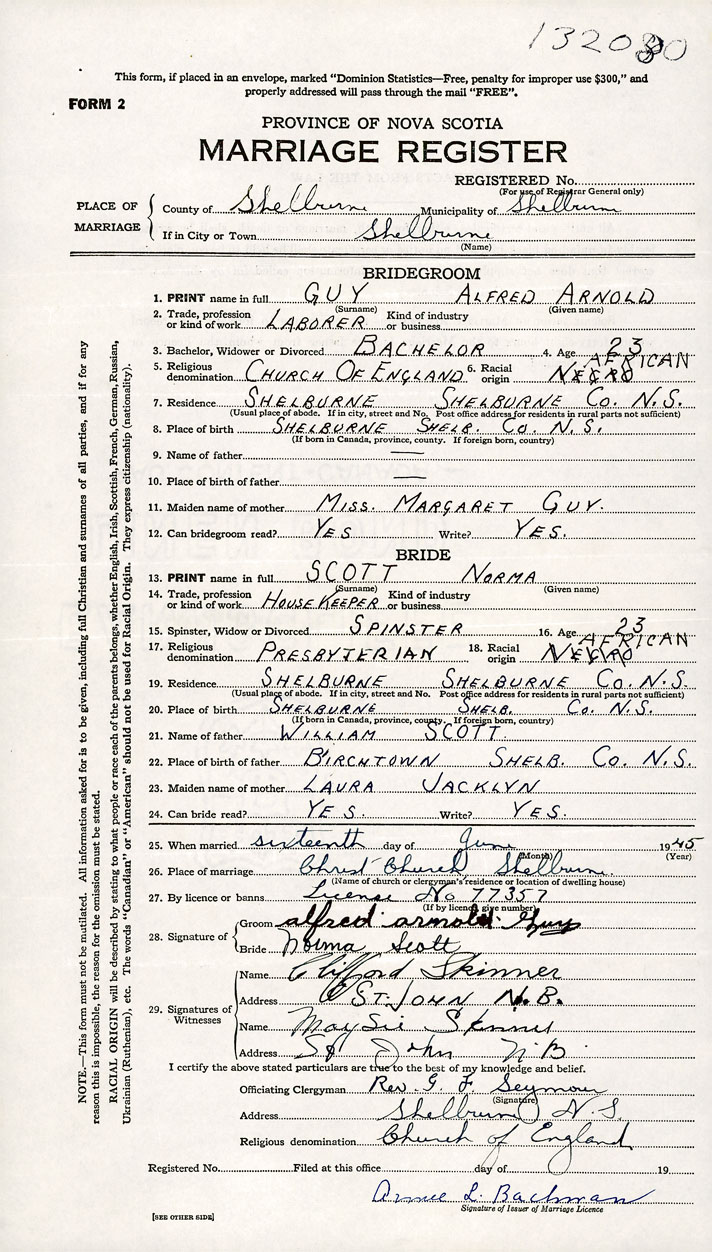 This form, if placed in an envelope, marked "Dominion Statistics—Free, penalty for improper use $300," and
properly addressed will pass through the mail "FREE".
FORM 2
PROVINCE OF NOVA SCOTIA
MARRIAGE REGISTER
REGISTERED No.
(For use of Registrar General only)
PLACE OF MARRIAGE
County of Shelburne Municipality of Shelburne
If in City or Town Shelburne
(Name)
BRIDEGROOM
1. PRINT name in full GUY ALFRED ARNOLD
(Surname) (Given name)
2. Trade, profession or kind of work LABORER Kind of industry or business
3. Bachelor, Widower or Divorced BACHELOR 4. Age 23
5. Religious denomination CHURCH OF ENGLAND 6. Racial origin NEGRO AFRICAN
7. Residence SHELBURNE SHELBURNE CO. N.S.
(Usual place of abode. If in city, street and No. Post office address for residents in rural parts not sufficient)
8. Place of birth SHELBURNE SHELB. CO. N.S.
(If born in Canada, province, county. If foreign born, country)
9. Name of father —
10. Place of birth of father —
11. Maiden name of mother MISS. MARGARET GUY.
12. Can bridegroom read? YES Write? YES.
BRIDE
13. PRINT name in full SCOTT NORMA
(Surname) (Given name)
14. Trade, profession or kind of work HOUSEKEEPER Kind of industry or business
15. Spinster, Widow or Divorced SPINSTER 16. Age 23
17. Religious denomination PRESBYTERIAN 18. Racial origin NEGRO AFRICAN
19. Residence SHELBURNE SHELBURNE CO. N.S.
(Usual place of abode. If in city, street and No. Post office address for residents in rural parts not sufficient)
20. Place of birth SHELBURNE SHELB. CO. N.S.
(If born in Canada, province, county. If foreign born, country)
21. Name of father WILLIAM SCOTT.
22. Place of birth of father BIRCHTOWN SHELB. CO. N.S.
23. Maiden name of mother LAURA JACKLYN
24. Can bride read? YES. Write? YES.
25. When married sixteenth day of June 1945
(Month) (Year)
26. Place of marriage Christ Church, Shelburne.
(Name of church or clergyman's residence or location of dwelling house)
27. By licence or banns License No 77357
(If by licence give number)
28. Signature of
Groom alfred arnold Guy
Bride Norma Scott
29. Signatures of Witnesses
Name Clifford Skinner
Address ST. JOHN N.B.
Name Maysie Skinner
Address St John N.B
I certify the above stated particulars are true to the best of my knowledge and belief.
Officiating Clergyman Rev. G. F. Seymour
(Signature)
Address Shelburne N.S.
Religious denomination Church of England
Registered No. Filed at this office day of 19
L. Bachman
Signature of Issuer of Marriage Licence
[SEE OTHER SIDE]
NOTE.—This form must not be mutilated. All information asked for is to be given, including full Christian and surnames of all parties, and if for any
reason this is impossible, the reason for the omission must be stated.
RACIAL ORIGIN will be described by stating to what people or race each of the parents belongs, whether English, Irish, Scottish, French, German, Russian,
Ukrainian (Ruthenian), etc. The words "Canadian" or "American" should not be used for Racial Origin. They express citizenship (nationality).